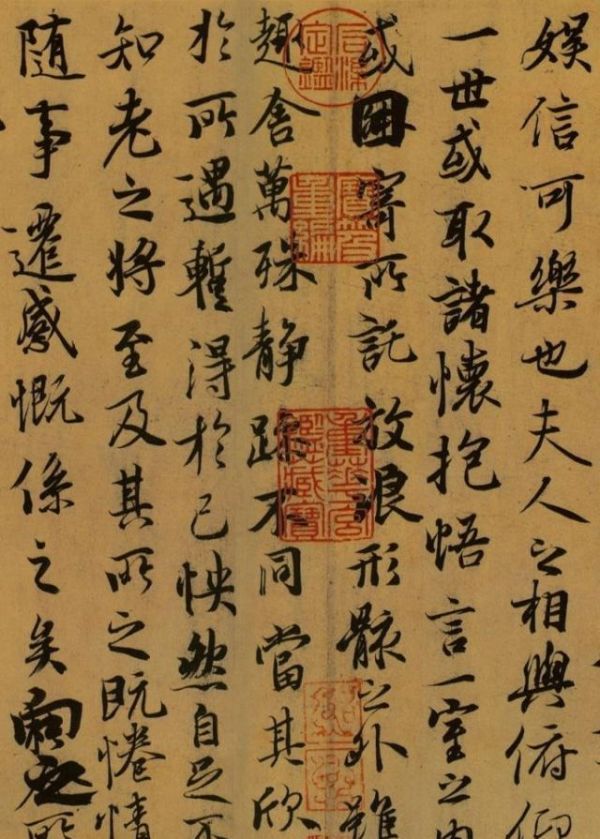 娛信可樂也夫人之相與俯仰
一世或取諸懷抱悟言一室之內
或因寄所託放浪形骸之外雖
趣舍萬殊静躁不同當其欣
於所遇暫得於己怏然自足不
知老之將至及其所之既惓情
隨事遷感慨係之矣向之所
石渠定鑑
寶笈重編
重華宮鑑藏寶